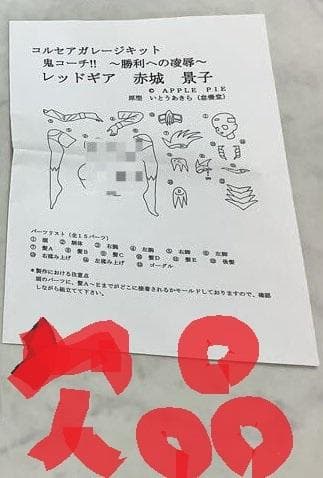 コルセアガレージキット
鬼コーチ!! ～勝利への凌辱～
レッドギア 赤城 景子
© APPLE PIE
原型 いとうあきら（怠惰堂）
パーツリスト（全１５パーツ）
① 頭 ② 胴体 ③ 右腕 ④ 左腕 ⑤ 右脚 ⑥ 左脚
⑦ 髪A ⑧ 髪B ⑨ 髪C ⑩ 髪D ⑪ 髪E ⑫ 後髪
⑬ 右揉み上げ ⑭ 左揉み上げ ⑮ ゴーグル
＊製作における注意点
頭のパーツに、髪A～Eまでがどこに接着されるかモールドしておりますので、確認
しながら組立てて下さい。
欠品